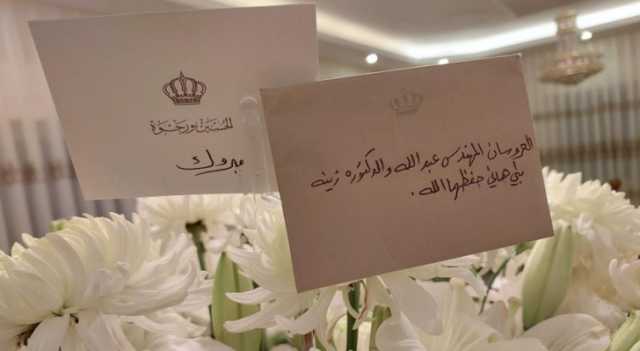 الحسين ورجوة
مبروك
العروسان المهندس عبدالله والدكتوره زينه
بني هاني حفظهما الله.